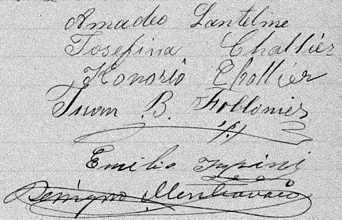 Amadeo Lantelme
Josefina Challier
Honorio Challier
Juan B. Follonier
Emilia
Benigno